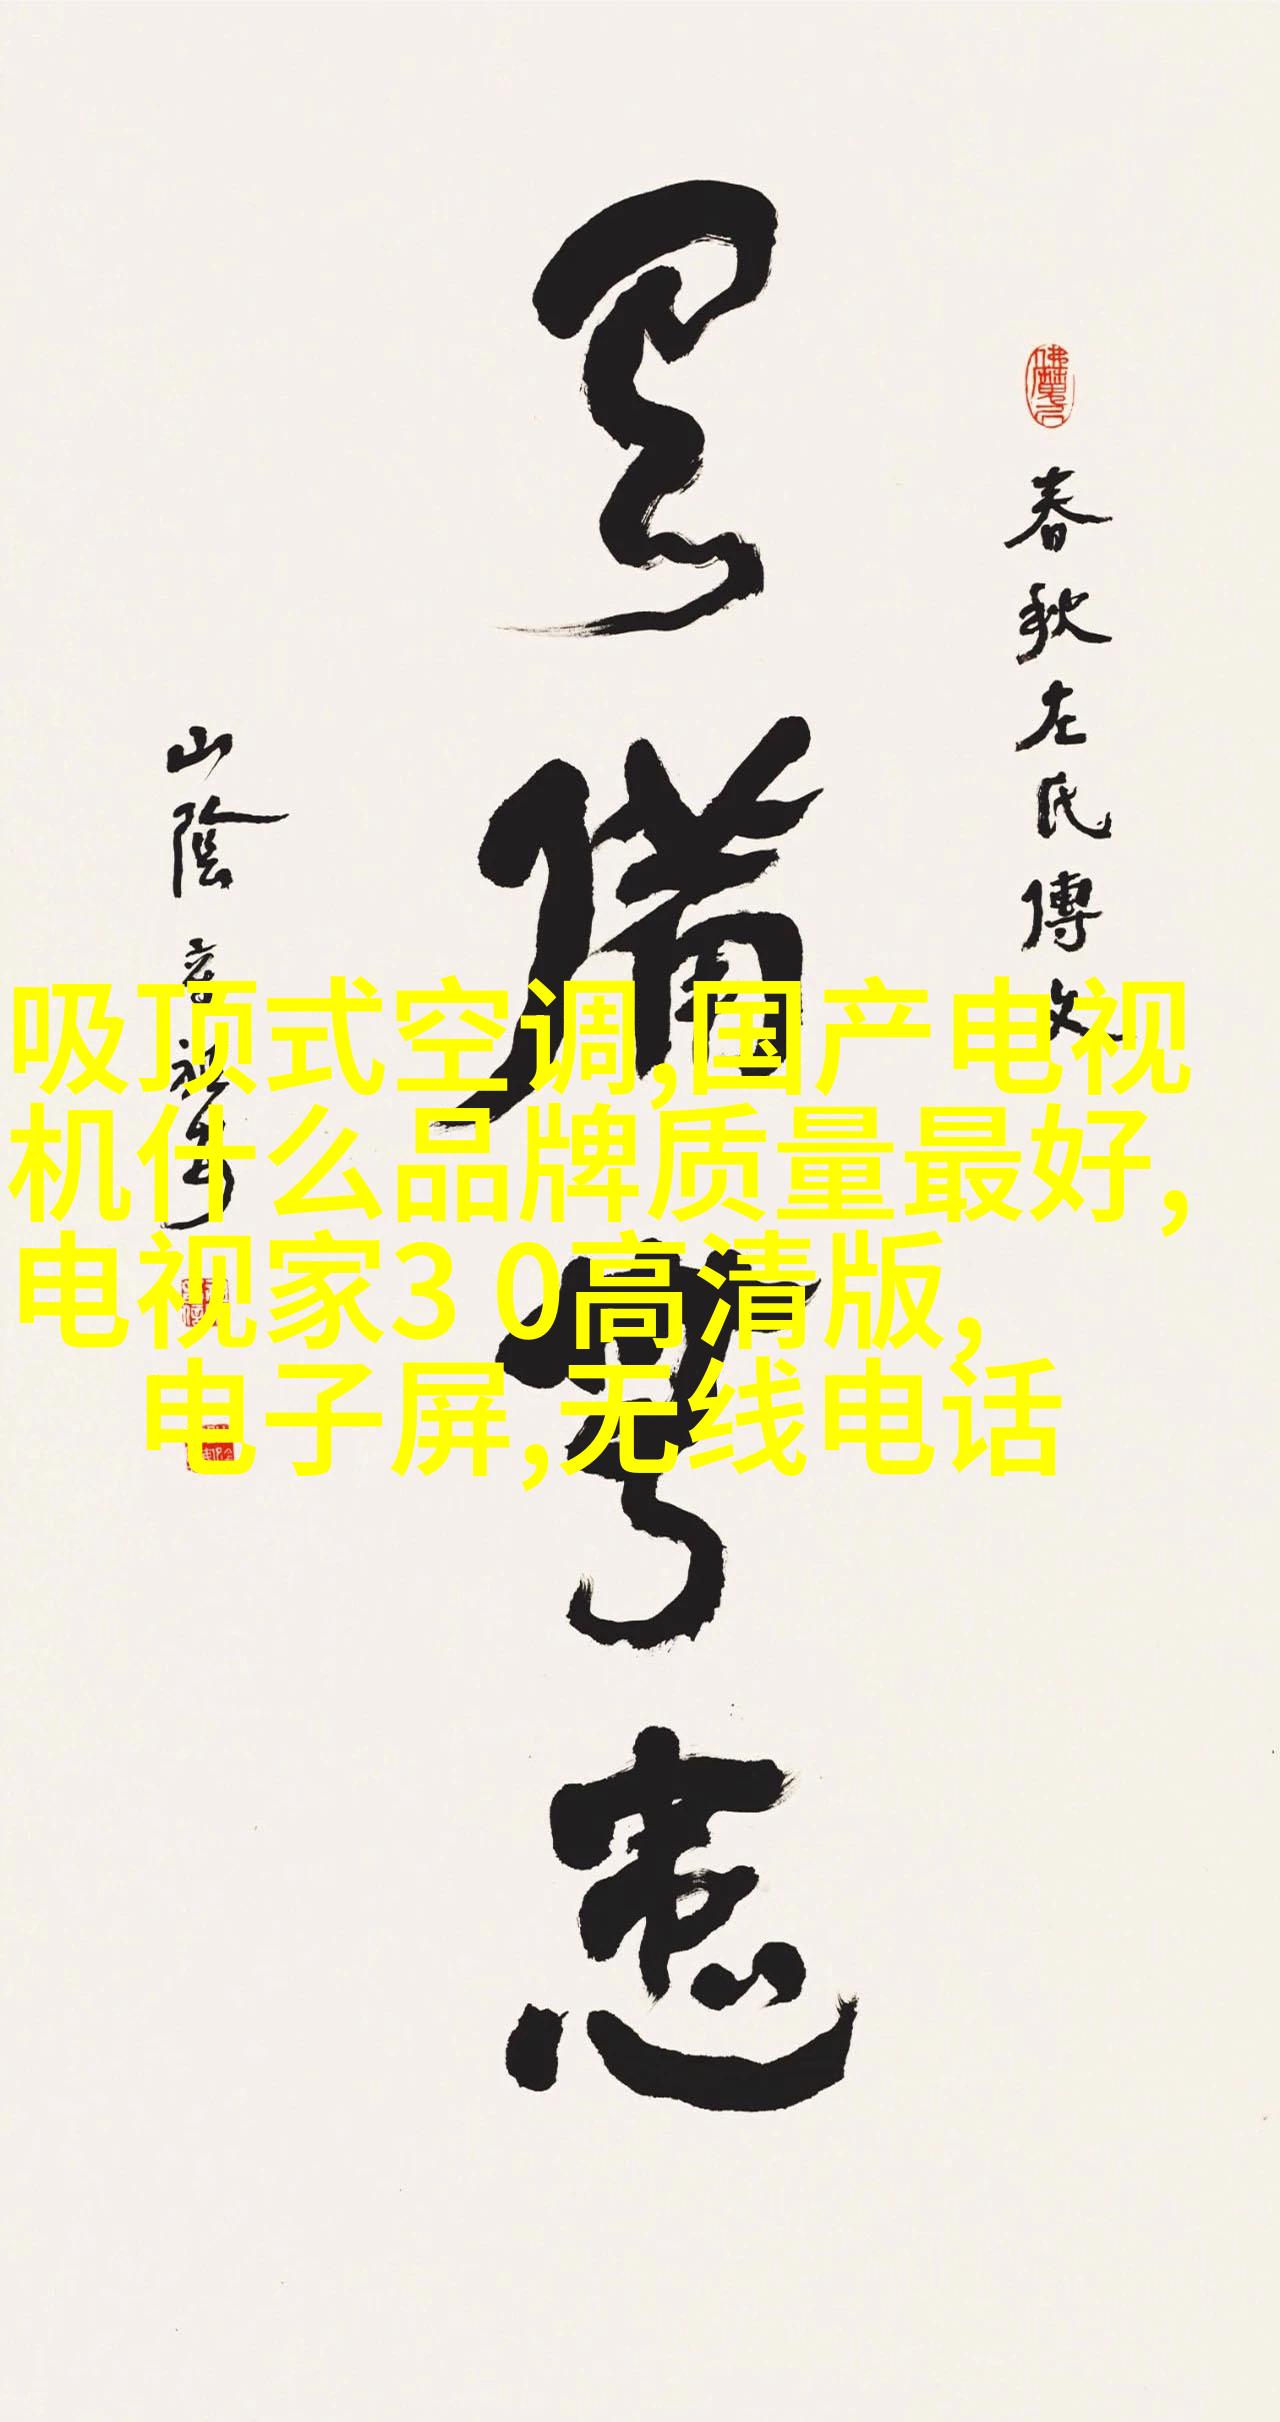 春秋左氏傳文
有備無患
山陰
吸顶式空调,国产电视
机什么品牌质量最好,
电视家3 0高清版,
电子屏,无线电话